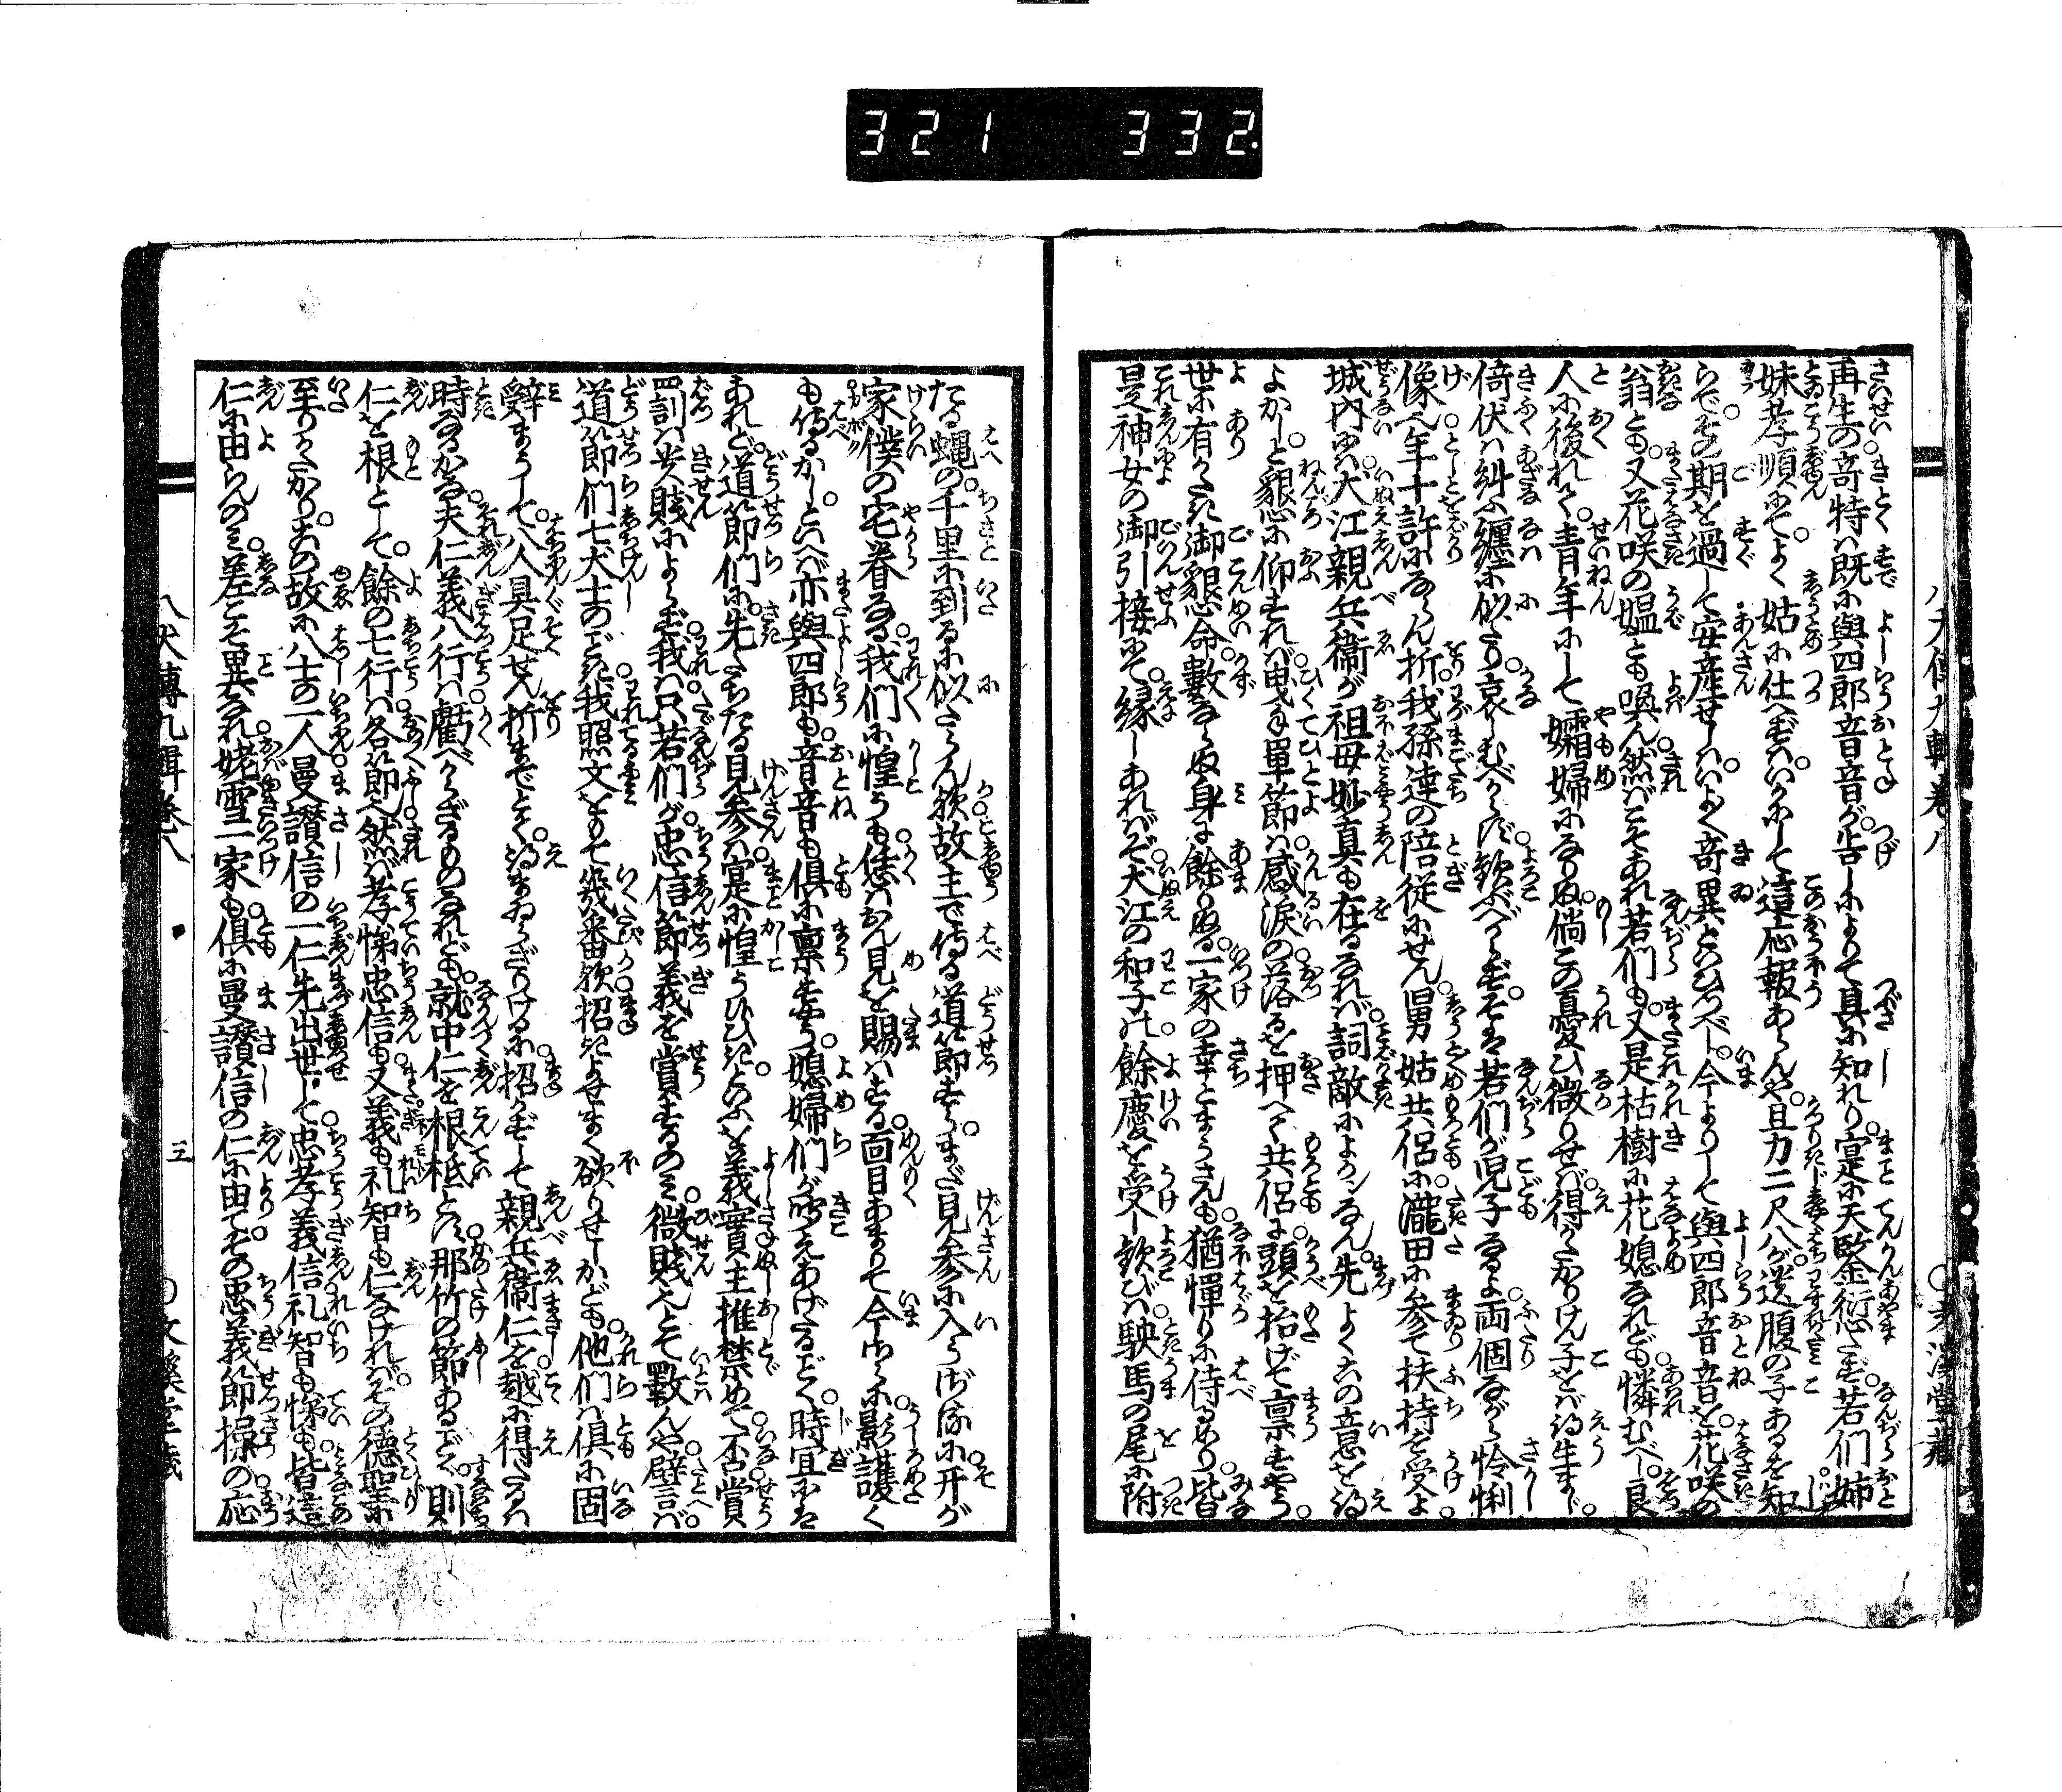 321 332
再生の竒特ハ既に與四郎音音が告しによりて具に知れり寔に天鑒衍たず若们姉
妹孝順にてよく姑に仕へずハいかにして這応報あらんや且力二尺八が送腹の子あるを知
らでその期を過して安産せしハいよく竒異とのひつべし今よりして與四郎音音を花咲の
翁とも又花咲の媼とも喚ん然ばとそあれ若们も又是枯樹に花媳なれども憐むべし良
人に後れて青年にして孀婦になりぬ倘この憂ひ微りせば得がたかりけん子をバ得生まじ
倚伏ハ糾ふ纏に似たり哀むべからず歓ぶべからずそも若们が児子なるよ両個ながら怜悧
像元年十許にならん折我孫達の陪従にせん舅姑共侶に瀧田に参て扶持を受よ
城内にハ犬江親兵衞が祖母妙真も在るなれバ詞敵によかンなん先よくこの意を得
よかしと懇に仰すれバ曳手單節ハ感涙の落るを押へて共侶に頭を抬げて禀すやう
世に有がたき御懇命數ならぬ身に餘りぬる一家の幸とまうさんも猶憚りに侍るめり皆
是神女の御引接にて縁しあれバぞ犬江の和子の餘慶を受し歓びハ駛馬の尾に附
たる蝿の千里に到るに似たらん歟故主で侍る道節すらまだ見参に入らざるに开が
家僕の宅眷なる我们に惶くも恁ハかん見を賜ハする面目あまりて今さらに影護く
も侍るかしといへバ亦與四郎も音音も倶に禀すやう媳婦们が聞えあげたるごとく時宜にハ
あれど道節们に先だちたる見参ハ寔に惶うひひきといふを義實主推禁めて否賞
罰ハ貴賎によらず我ハ只若们が忠信節義を賞するのミ微賎とて斁んや譬言バ
道節们七犬士のごとき我照文をもて幾番歟招きよせまく欲りせしかども他们ハ倶に固
辞まうして八人具足せん折までとて得まゐらざりけるに招かずして親兵衞仁を越に得たるハ
時なるかな夫仁義八行ハ虧べからざるものなれども就中仁を根柢とハ那竹の節あるごと則
仁を根として餘の七行ハ各節へ然バ孝悌忠信も又義も礼智も仁なけれバその徳聖に
至りがたかりこの故に八士の一人曼讃信の一仁先出世して忠孝義信礼智も悌も皆這
仁に由らんのミ差こそ異なれ姥雪一家も倶に曼讃信の仁に由てその忠義節操の応
八犬傳九輯巻八
三